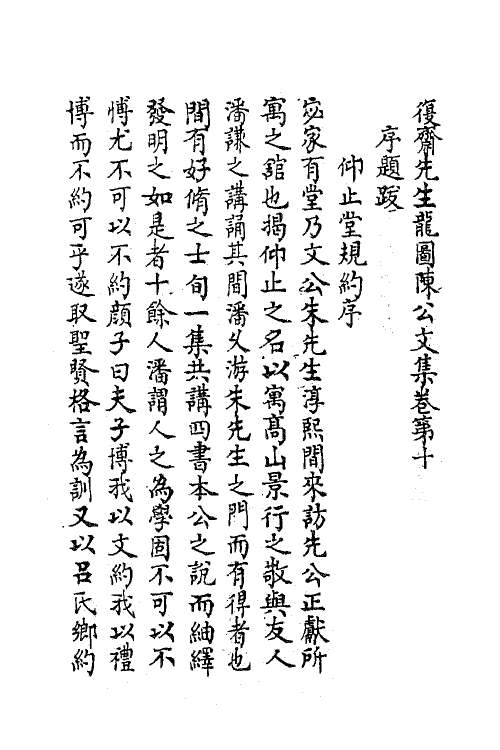 復齋先生龍圖陳公文集卷第十
序題跋
仰止堂規約序
宓家有堂乃文公朱先生淳熙間來訪先公正獻所
寓之舘也揭仰止之名以寓髙山景行之敬與友人
潘謙之講誦其間潘久游朱先生之門而有得者也
間有好脩之士旬一集共講四書本公之說而紬繹
發明之如是者十餘人潘謂人之為學固不可以不
博尤不可以不約顔子曰夫子博我以文約我以禮
博而不約可乎遂取聖賢格言為訓又以呂氏鄉約